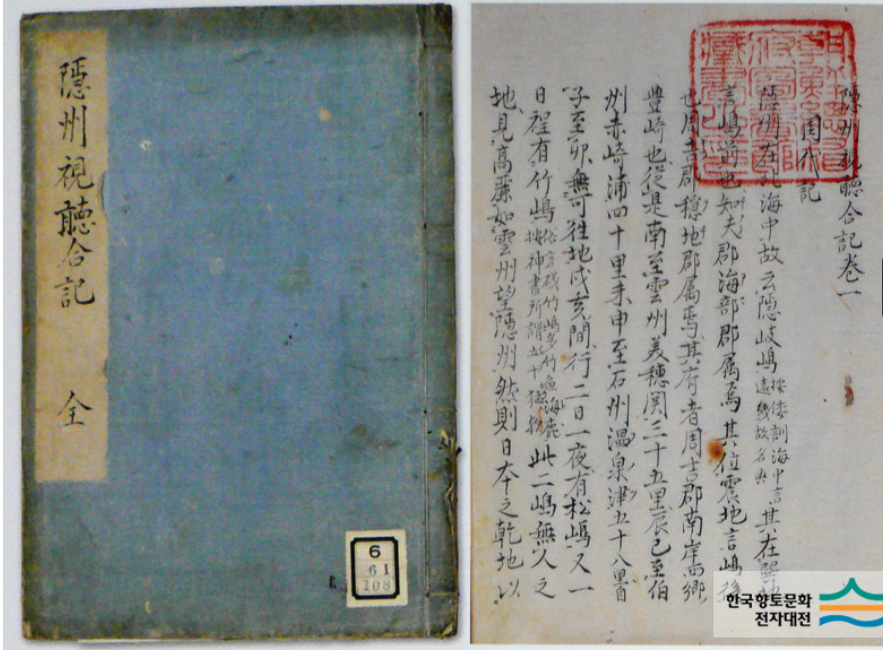 隱州視聽合記 全
6
61
108
朝鮮總督府圖書館藏書之印
隱州視聽合記卷一
国代記
隱州在北海中故云隱岐嶋按倭訓海中言遠幾故名歟其在巽地
言嶋前也知夫郡海部郡属焉其位震地言嶋後
也周吉郡穩地郡属焉其府者周吉郡南岸西郷
豊崎也從是南至雲州美穗関三十五里辰巳至伯
州赤崎浦四十里未申至石州温泉津五十八里自
子至卯無可往地戍亥間行二日一夜有松嶋又一
日程有竹嶋俗言磯竹嶋多竹魚海鹿按神書所謂五十猛歟此二嶋無人之
地見高麗如雲州望隱州然則日本之乾地以
한국향토문화
전자대전